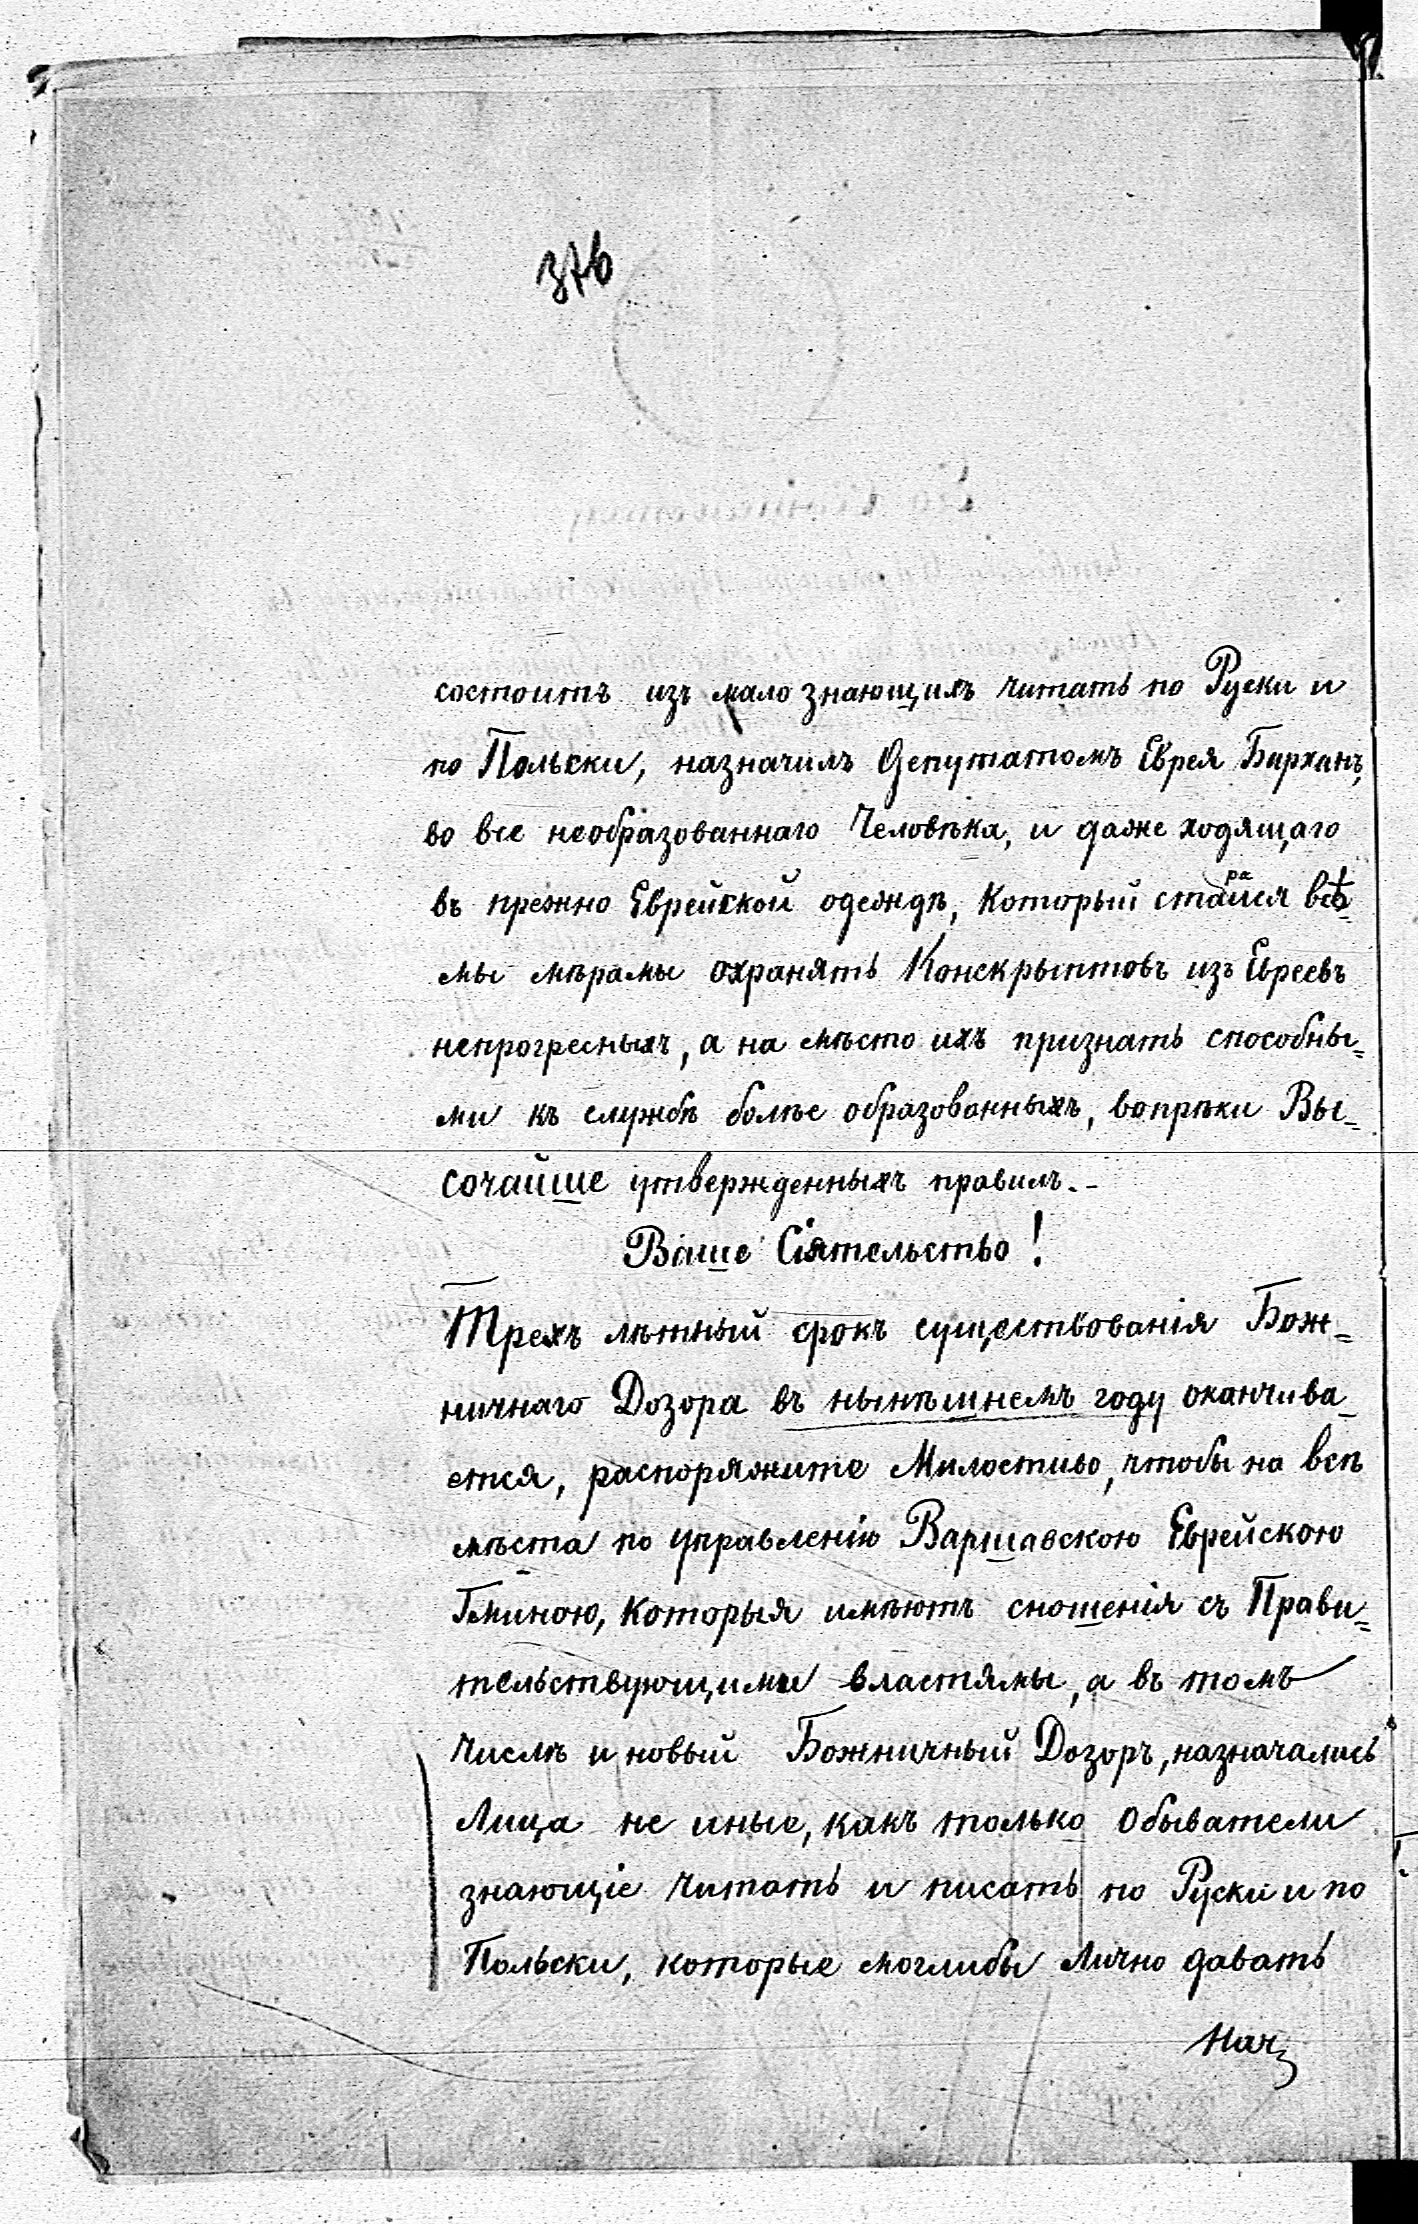 37b
состоитъ изъ мало знающихъ читать по Руски и
по Польски, назначилъ Депутатомъ Еврея Бирханъ,
во все необразованнаго Человѣка, и даже ходящаго
въ прежно Еврейской одеждѣ, Который стараися всѣ=
мы мѣрамы охранять Конскрыптовъ изъ Евреевъ
непрогресныхъ, а на мѣсто ихъ признать способны=
ми къ службѣ болѣе образованныхъ, вопрѣки Вы=
сочайше утвержденныхъ правилъ.-
Ваше Сіятельство!
Трехъ лѣтный срокъ существованія Бож=
ничнаго Дозора въ нынѣшнемъ году оканчива_
ется, распоряжите Милостиво, чтобы на всѣ
мѣста по управленію Варшавскою Еврейскою
Гминою, которыя имѣютъ сношенія съ Прави=
тельствующими властямы, а въ томъ
числѣ и новый Божничный Дозоръ, назначались
Лица не иные, какъ только Обыватели
знающіе читать и писать по Руски и по
Польски, которые моглибы лично давать
Нач